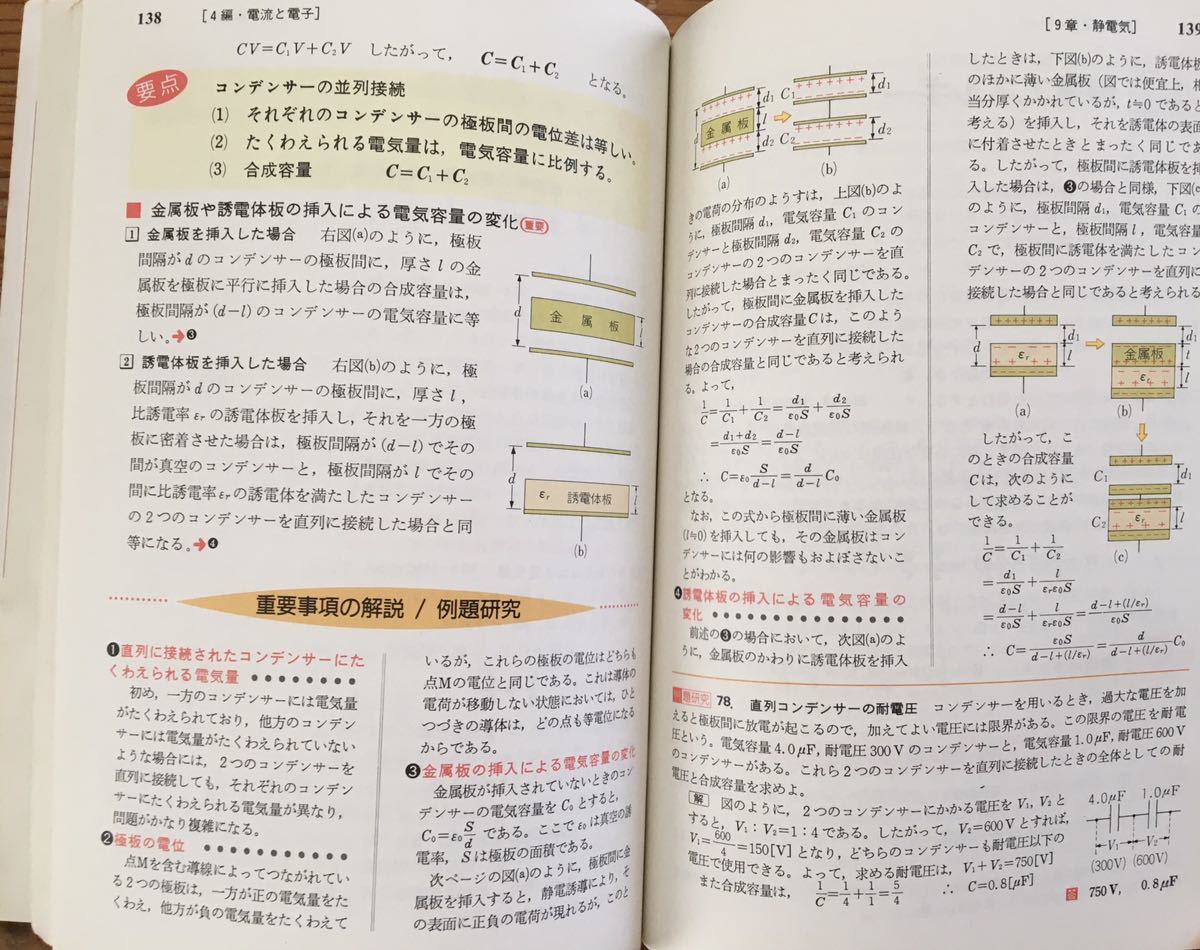 138
[4編・電流と電子]
CV=C₁V+C₂V したがって, C=C₁+C₂ となる。
要点
コンデンサーの並列接続
(1) それぞれのコンデンサーの極板間の電位差は等しい。
(2) たくわえられる電気量は,電気容量に比例する。
(3) 合成容量 C=C₁+C₂
■ 金属板や誘電体板の挿入による電気容量の変化 重要
1 金属板を挿入した場合 右図(a)のように,極板
間隔がdのコンデンサーの極板間に,厚さlの金
属板を極板に平行に挿入した場合の合成容量は,
極板間隔が(d-l)のコンデンサーの電気容量に等
しい。➔❸
2 誘電体板を挿入した場合 右図(b)のように,極
板間隔がdのコンデンサーの極板間に,厚さl,
比誘電率εrの誘電体板を挿入し,それを一方の極
板に密着させた場合は,極板間隔が(d-l)でその
間が真空のコンデンサーと,極板間隔がlでその
間に比誘電率εrの誘電体を満たしたコンデンサー
の2つのコンデンサーを直列に接続した場合と同
等になる。➔❹
d
金属板
l
(a)
d
εr 誘電体板
l
(b)
重要事項の解説 / 例題研究
❶直列に接続されたコンデンサーにた
くわえられる電気量
初め,一方のコンデンサーには電気量
がたくわえられており,他方のコンデン
サーには電気量がたくわえられていない
ような場合には,2つのコンデンサーを
直列に接続しても,それぞれのコンデン
サーにたくわえられる電気量が異なり,
問題がかなり複雑になる。
❷極板の電位
点Mを含む導線によってつながれてい
る2つの極板は,一方が正の電気量をた
くわえ,他方が負の電気量をたくわえて
いるが,これらの極板の電位はどちらも
点Mの電位と同じである。これは導体の
電荷が移動しない状態においては,ひと
つづきの導体は,どの点も等電位になる
からである。
❸金属板の挿入による電気容量の変化
金属板が挿入されていないときのコン
デンサーの電気容量をC₀とすると,
C₀=ε₀S/d である。ここでε₀は真空の誘
電率,Sは極板の面積である。
次ページの図(a)のように,極板間に金
属板を挿入すると,静電誘導により,そ
の表面に正負の電荷が現れるが,このと
[9章・静電気]
139
d
金属板
d₁
l
d₂
(a)
C₁
C₂
d₁
d₂
(b)
きの電荷の分布のようすは,上図(b)のよ
うに,極板間隔d₁,電気容量C₁のコン
デンサーと極板間隔d₂,電気容量C₂の
コンデンサーの2つのコンデンサーを直
列に接続した場合とまったく同じである。
したがって,極板間に金属板を挿入した
コンデンサーの合成容量Cは,このよう
な2つのコンデンサーを直列に接続した
場合の合成容量と同じであると考えられ
る。よって,
1/C=1/C₁+1/C₂=d₁/ε₀S+d₂/ε₀S
=(d₁+d₂)/ε₀S=(d-l)/ε₀S
∴ C=ε₀S/(d-l)=d/(d-l)C₀
となる。
なお,この式から極板間に薄い金属板
(l≒0)を挿入しても,その金属板はコン
デンサーには何の影響もおよぼさないこ
とがわかる。
❹誘電体板の挿入による電気容量の
変化
前述の❸の場合において,次図(a)のよ
うに,金属板のかわりに誘電体板を挿入
したときは,下図(b)のように,誘電体
のほかに薄い金属板(図では便宜上,相
当分厚くかかれているが,t≒0であると
考える)を挿入し,それを誘電体の表面
に付着させたときとまったく同じであ
る。したがって,極板間に誘電体板を挿
入した場合は,❸の場合と同様,下図(c)
のように,極板間隔d₁,電気容量C₁の
コンデンサーと,極板間隔l,電気容量
C₂で,極板間に誘電体を満たしたコン
デンサーの2つのコンデンサーを直列に
接続した場合と同じであると考えられる
d
εr
d₁
l
(a)
金属板
εr
d₁
t
l
(b)
C₁
d₁
C₂
εr
l
(c)
したがって,こ
のときの合成容量
Cは,次のように
して求めることが
できる。
1/C=1/C₁+1/C₂
=d₁/ε₀S+l/εrε₀S
=(d-l)/ε₀S+l/εrε₀S=(d-l+(l/εr))/ε₀S
∴ C=ε₀S/(d-l+(l/εr))=d/(d-l+(l/εr))C₀
題研究 78. 直列コンデンサーの耐電圧 コンデンサーを用いるとき,過大な電圧を加
えると極板間に放電が起こるので,加えてよい電圧には限界がある。この限界の電圧を耐電
圧という。電気容量4.0μF,耐電圧300Vのコンデンサーと,電気容量1.0μF,耐電圧600V
のコンデンサーがある。これら2つのコンデンサーを直列に接続したときの全体としての耐
電圧と合成容量を求めよ。
解 図のように,2つのコンデンサーにかかる電圧をV₁,V₂と
すると,V₁:V₂=1:4である。したがって,V₂=600Vとすれば,
V₁=600/4=150[V]となり,どちらのコンデンサーも耐電圧以下の
電圧で使用できる。よって,求める耐電圧は,V₁+V₂=750[V]
また合成容量は, 1/C=1/4+1/1=5/4 ∴ C=0.8[μF]
4.0μF 1.0μF
V₁ V₂
(300V) (600V)
答 750V, 0.8μF